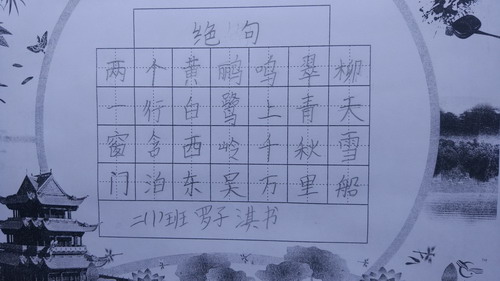 绝句
两个黄鹂鸣翠柳
一行白鹭上青天
窗含西岭千秋雪
门泊东吴万里船
二(1)班 罗子淇书